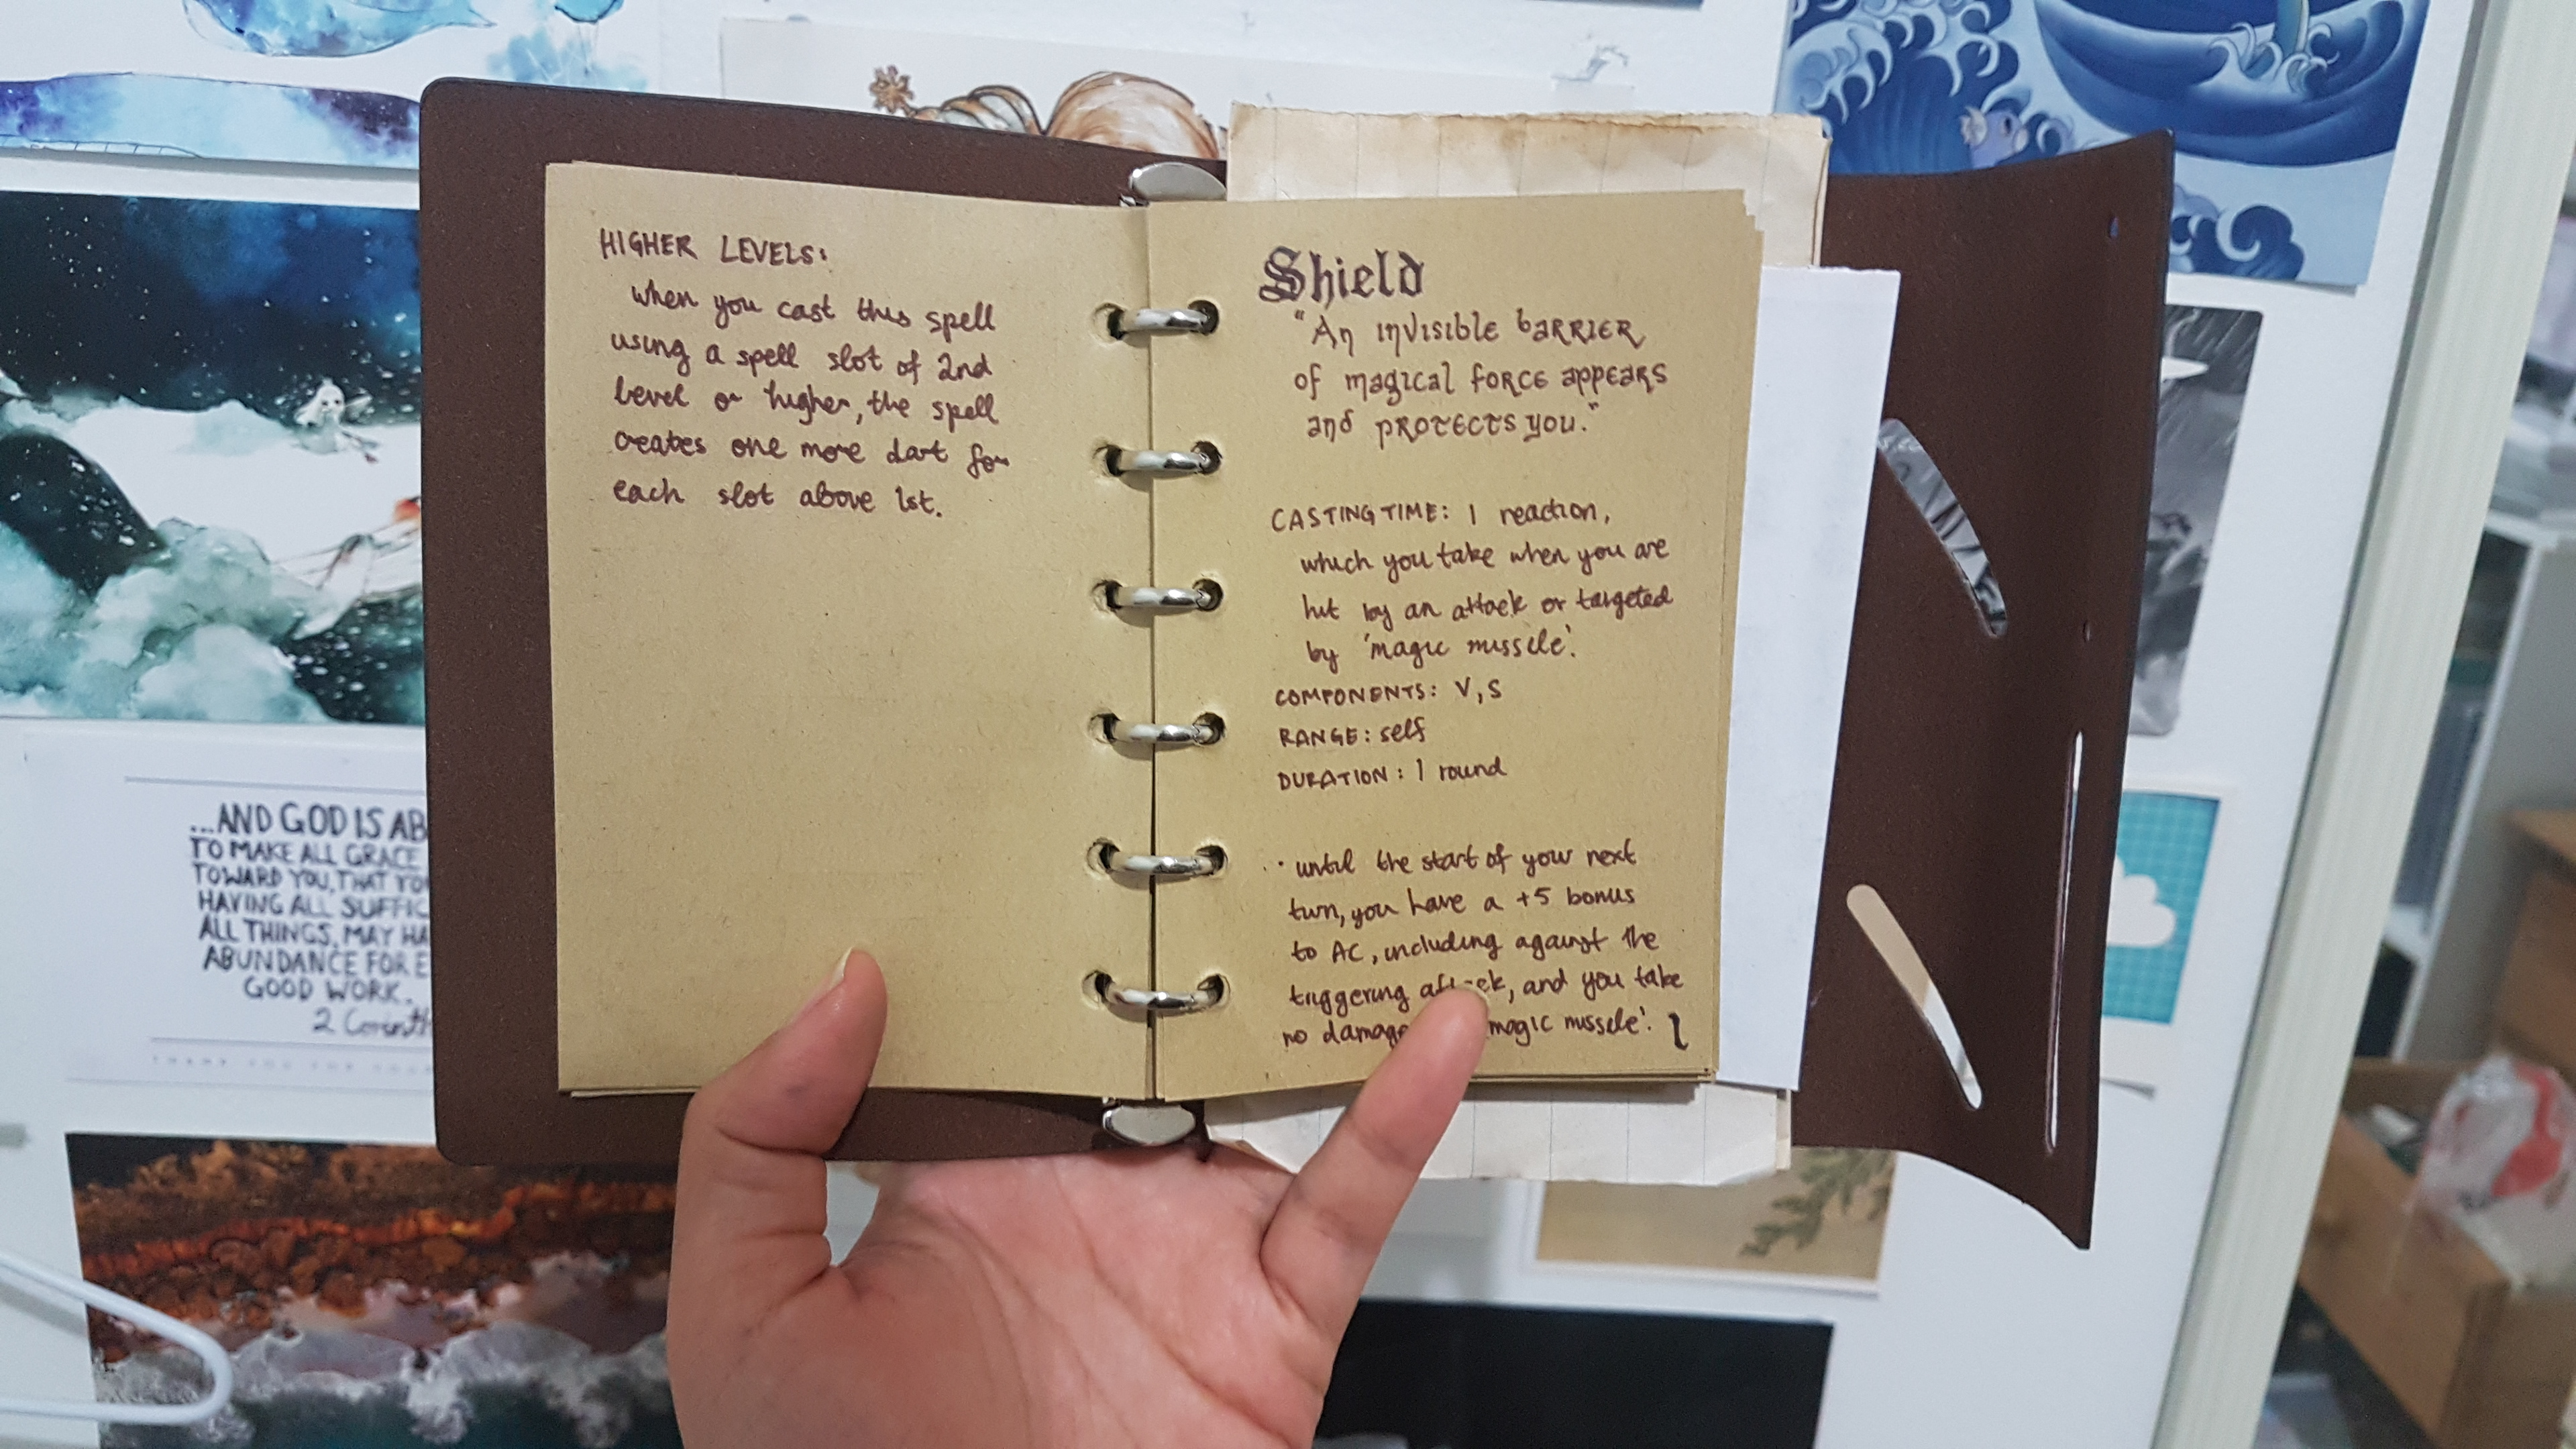 HIGHER LEVELS:
when you cast this spell
using a spell slot of 2nd
level or higher, the spell
creates one more dart for
each slot above 1st.
Shield
"An invisible barrier
of magical force appears
and protects you."
CASTING TIME: 1 reaction,
which you take when you are
hit by an attack or targeted
by 'magic missile'.
COMPONENTS: V, S
RANGE: self
DURATION: 1 round
· until the start of your next
turn, you have a +5 bonus
to AC, including against the
triggering attack, and you take
no damage magic missile'. 1
...AND GOD IS AB
TO MAKE ALL GRACE
TOWARD YOU, THAT YO
HAVING ALL SUFFIC
ALL THINGS, MAY HA
ABUNDANCE FOR E
GOOD WORK.
2 Corinth